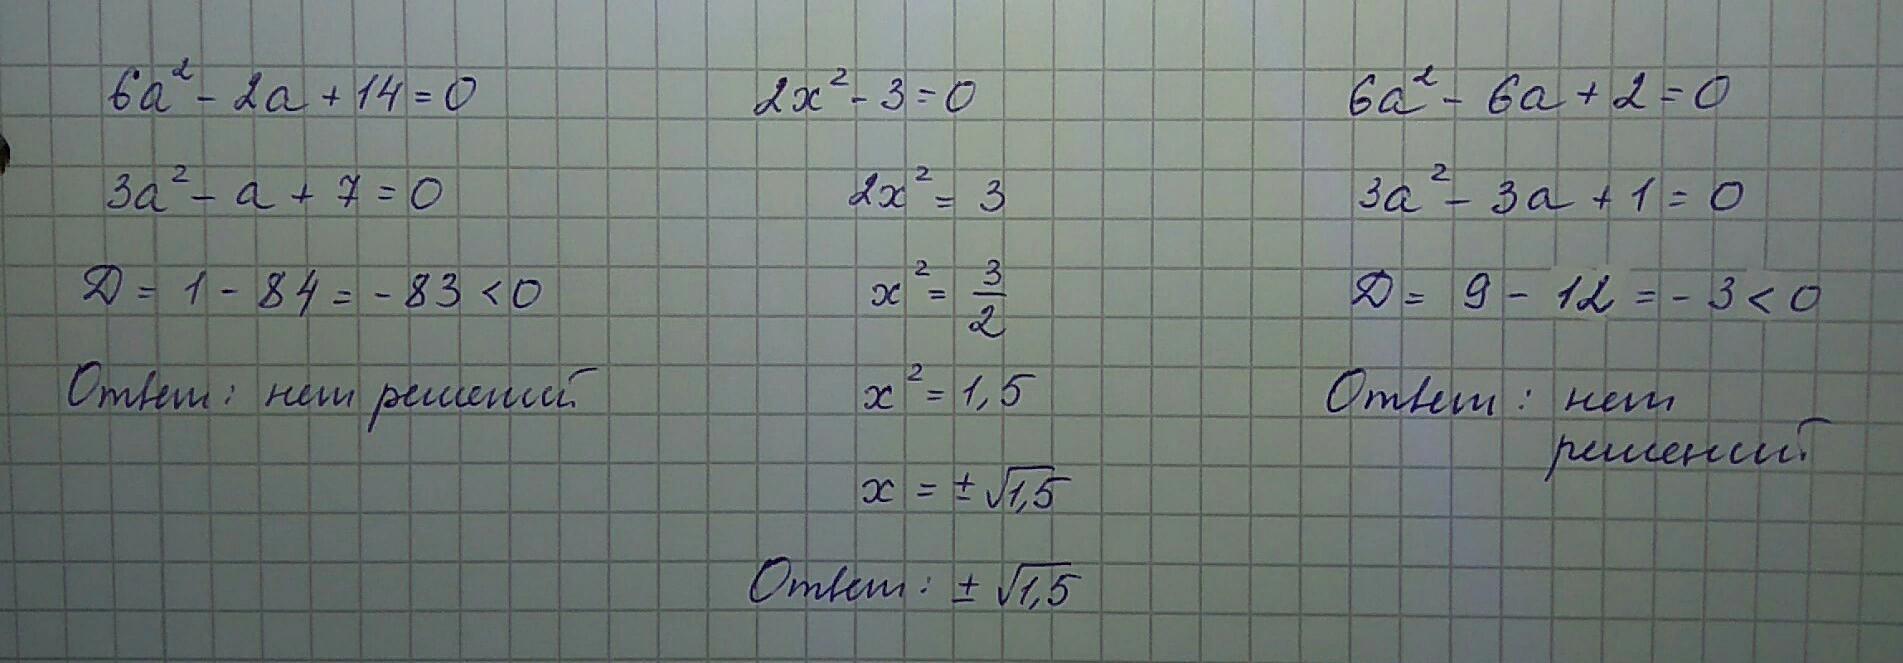 6a² - 2a + 14 = 0
3a² - a + 7 = 0
D = 1 - 84 = - 83 < 0
Ответ: нет решений
2x² - 3 = 0
2x² = 3
x² = 3/2
x² = 1,5
x = ± √1,5
Ответ: ± √1,5
6a² - 6a + 2 = 0
3a² - 3a + 1 = 0
D = 9 - 12 = - 3 < 0
Ответ: нет
решений